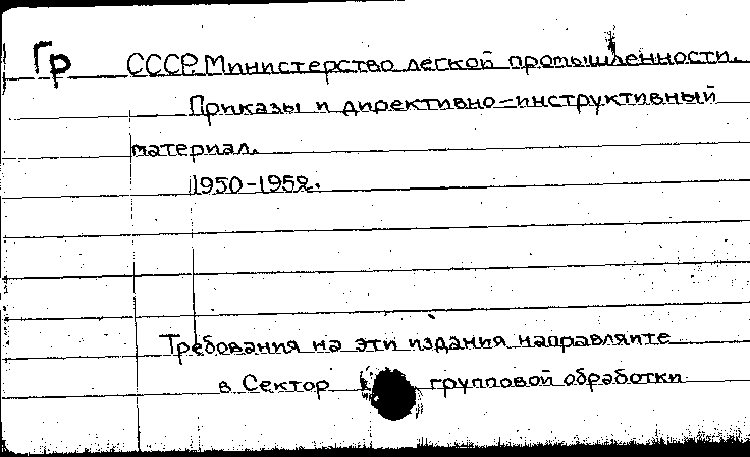 Гр СССР. Министерство легкой промышленности.
Приказы и директивно-инструктивный
материал.
1950-1952.
Требования на эти издания направляйте
в Сектор групповой обработки